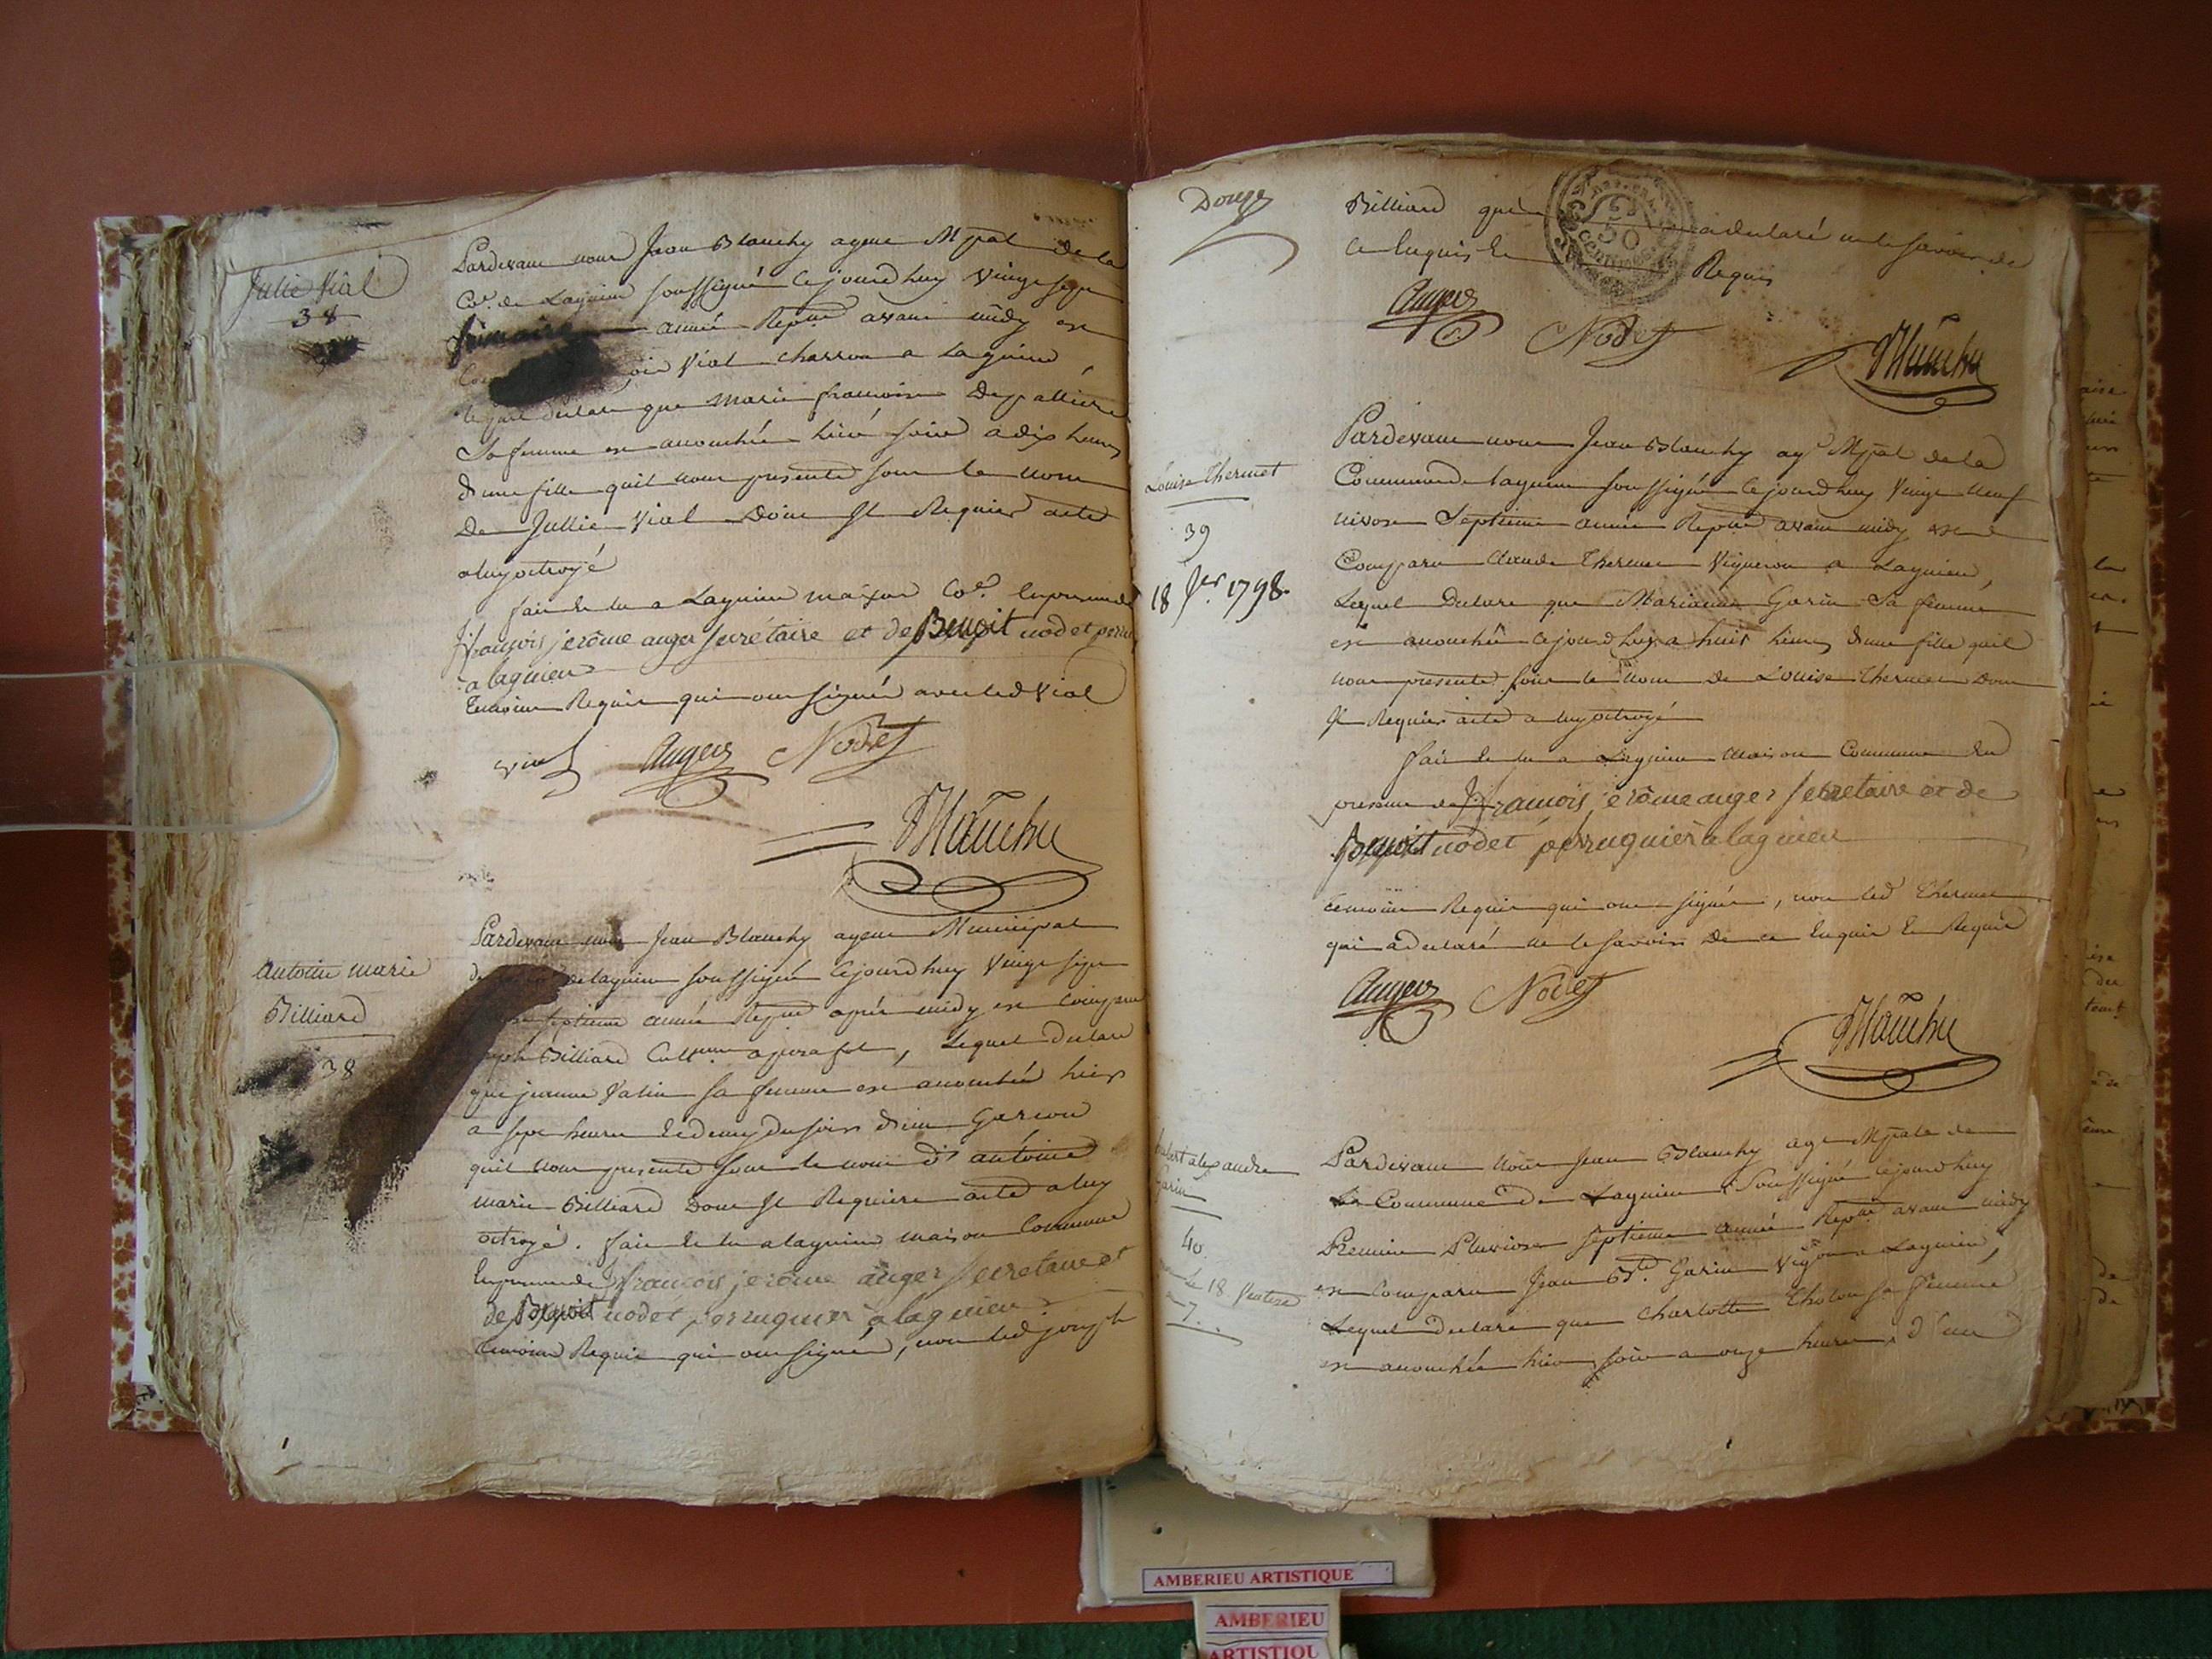 Julie Vial
38
Pardevant nous Jean Blanchy agent Mpal de la
Coe. de Lagnieu soussigné Cejourdhuy Vingt sept
frimaire année Repne avant midy est
Vial charron a Lagnieu
lequel declare que Marie francoise Depalliere
Sa femme est accouchée hier soir a dix heures
dune fille quil nous presente sous le nom
De Jullie Vial Dont Il Requier acte
a luy octroyé
fait et lu a Lagnieu maison Coe. En presence de
françois jerôme auger secrétaire et de Benoit nodet
a lagnieu
temoins Requis qui ont signés avec led Vial
vial Auger Nodet
Blanchy
Antoine marie
Billiard
38
Pardevant nous Jean Blanchy agent Municipal
de lagnieu soussigné Cejourdhuy Vingt sept
septieme année Repne après midy est Comparu
Billiard Cultr a , Lequel Declare
que jeanne Vatin sa femme est accouchée hier
a sept heures et demy du soir d'un Garcon
quil nous presente sous le nom d'antoine
marie Billiard Dont Il Requiere acte a luy
octroyé. fait et lu a lagnieu maison Commune
En presence de françois jerôme auger secretaire et
de Benoit nodet perruquier a lagnieu
temoins Requis qui ont signés, non led joseph
Douze
Billiard qui a declaré ne le savoir de
ce Enquis Et Requis
50
CENTIMES
Auger
Nodet
Blanchy
Louise Thermet
39
18 Jer 1798.
Pardevant nous Jean Blanchy agt Mpal de la
Commune de lagnieu soussigné Cejourdhuy Vingt neuf
nivose Septieme année Repne avant midy est
Comparu Claude Thermet Vigneron a Lagnieu,
Lequel Declare que Marianne Garin Sa femme
est accouchée cejourdhuy a huit heures dune fille quil
nous presente sous le nom de Louise Thermet Dont
Il Requier acte a luy octroyé
fait et lu a Lagnieu maison Commune En
presence de françois jerôme auger secretaire et de
Benoit nodet perruquier a lagnieu
temoins Requis qui ont signés, non led Thermet
qui a declaré ne le savoir De ce Enquis Et Requis
Auger Nodet
Blanchy
alexandre
Garin
40
18 Ventose
7.
Pardevant Nous Jean Blanchy agt Mpale de
La Commune de Lagnieu Soussigné Cejourdhuy
Premier Pluviose Septieme année Repne avant midy
est Comparu Jean Bte. Garin Vigon a Lagnieu,
Lequel declare que Charlotte Tholon sa femme
est accouchée hier soir a onze heures d'un
AMBERIEU ARTISTIQUE
AMBERIEU
ARTISTIQU